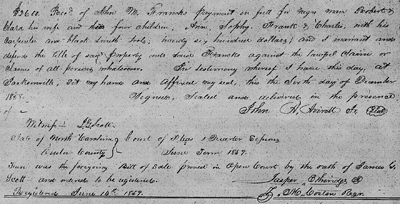 $2600. Recd. of John M. Franks payment in full for negro man Norbert &
Clara his wife and four children Ann, Sophy, Frank & Charles, with his
carpenter and black smith tools; twenty six hundred dollars; and I warrant and
defend the title of said property unto said Franks against the lawful claims or
claims of all persons whatsoever. In testimony whereof I have this day, at
Trentonville, set my hand and affixed my seal, this the Sixth day of December
185 . Signed, sealed and delivered in the presence
of — John A. Averitt Sr. Seal
Witness J. G. Scott
State of North Carolina Court of Pleas & Quarter Sessions
County June Term 1857.
Then was the foregoing Bill of Sale proved in Open Court by the oath of James G.
Scott and ordered to be registered. Jasper Etheridge
Registered June 14th 1857. McCotton Regr.